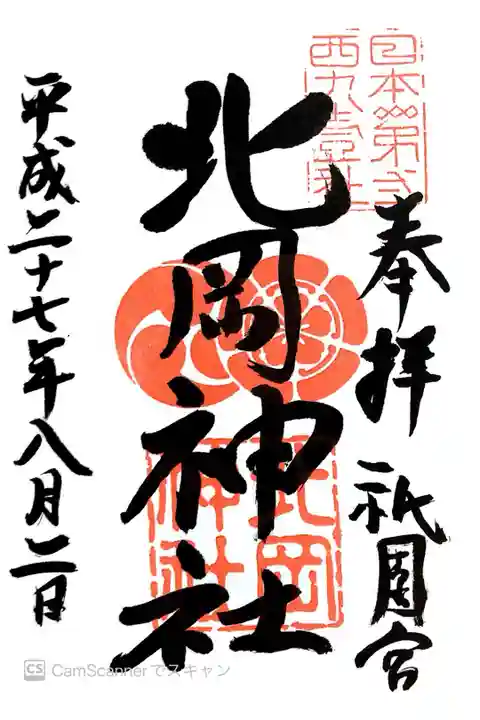 奉拝 祇園宮
北岡神社
北岡
神社
平成二十七年八月二日
CS CamScannerでスキャン